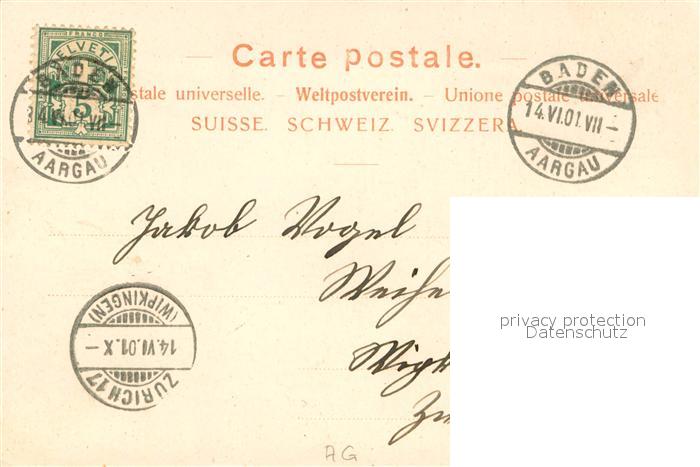 FRANCO
HELVETIA
5
BADEN
AARGAU
Carte postale.
BADEN
14.VI.01.VII–
AARGAU
stale universelle. – Weltpostverein. – Unione postale universale
SUISSE. SCHWEIZ. SVIZZERA
Jakob Vogel
Weihe
privacy protection
Datenschutz
(WIPKINGEN)
14.VI.01.X–
ZÜRICH 17
Wipk
Zü
AG